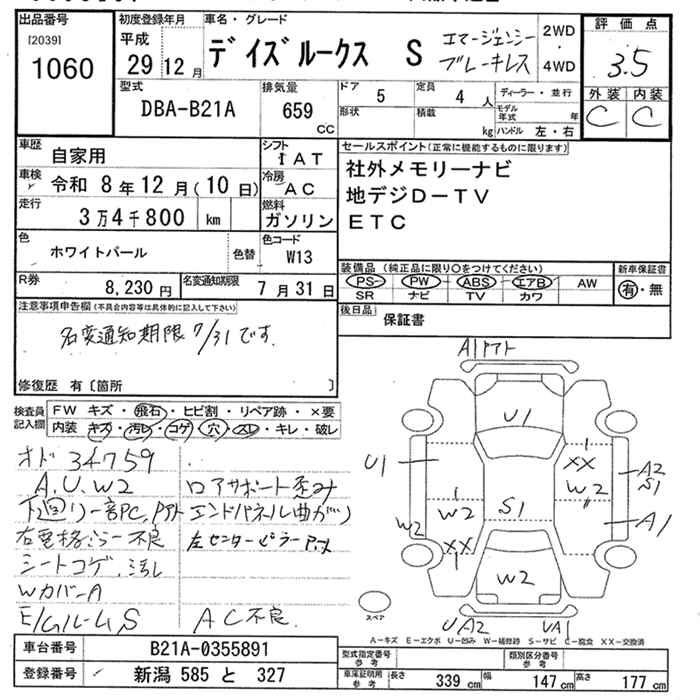 出品番号 初度登録年月 車名・グレード 評価点
[2039] 平成
1060 29 12月 デイズルークス S エマージェンシーブレーキレス 2WD・4WD 3.5
型式 排気量 ドア 5 定員 4人 ディーラー・並行 外装 内装
DBA-B21A 659 CC 形状 積載 kg モデル年式 年 C C
ハンドル 左・右
車歴 自家用 シフト IAT セールスポイント(正常に機能するものに限ります)
車検 令和 8年12月(10日) 冷房 AC 社外メモリーナビ
走行 3万4千800 km 燃料 ガソリン 地デジD-TV
ETC
色 ホワイトパール 色替 色コード W13
R券 8,230円 名変通知期限 7月31日
装備品(純正品に限り○をつけてください) 新車保証書
PS PW ABS エアB AW 有・無
SR ナビ TV カワ
注意事項申告欄(不具合内容等は具体的に記入して下さい) 後日品 保証書
名変通知期限7/31です。
修復歴 有〔箇所 〕
検査員記入欄 FW キズ・飛石・ヒビ割・リペア跡・×要
内装 キズ・汚レ・コゲ・穴・スレ・キレ・破レ
オド 34759
A.U.W2 ロアサポート歪み
下廻リ一部PC,アト エンドパネル曲がり
右電格ミラー不良 左センターピラーアト
シートコゲ.汚レ
WカバーA
E/Gルーム S AC不良
A1アト
U1
U1 XX W2 A2 S1
W2 W2 S1 A1
XX
W2
スペア UA2 UA1
A-キズ E-エクボ U-凹み W-補修跡 S-サビ C-腐食 XX-交換済
車台番号 B21A-0355891 型式指定番号 参考 類別区分番号 参考
登録番号 新潟 585 と 327 車庫証明用 参考 長さ 339 cm 幅 147 cm 高さ 177 cm